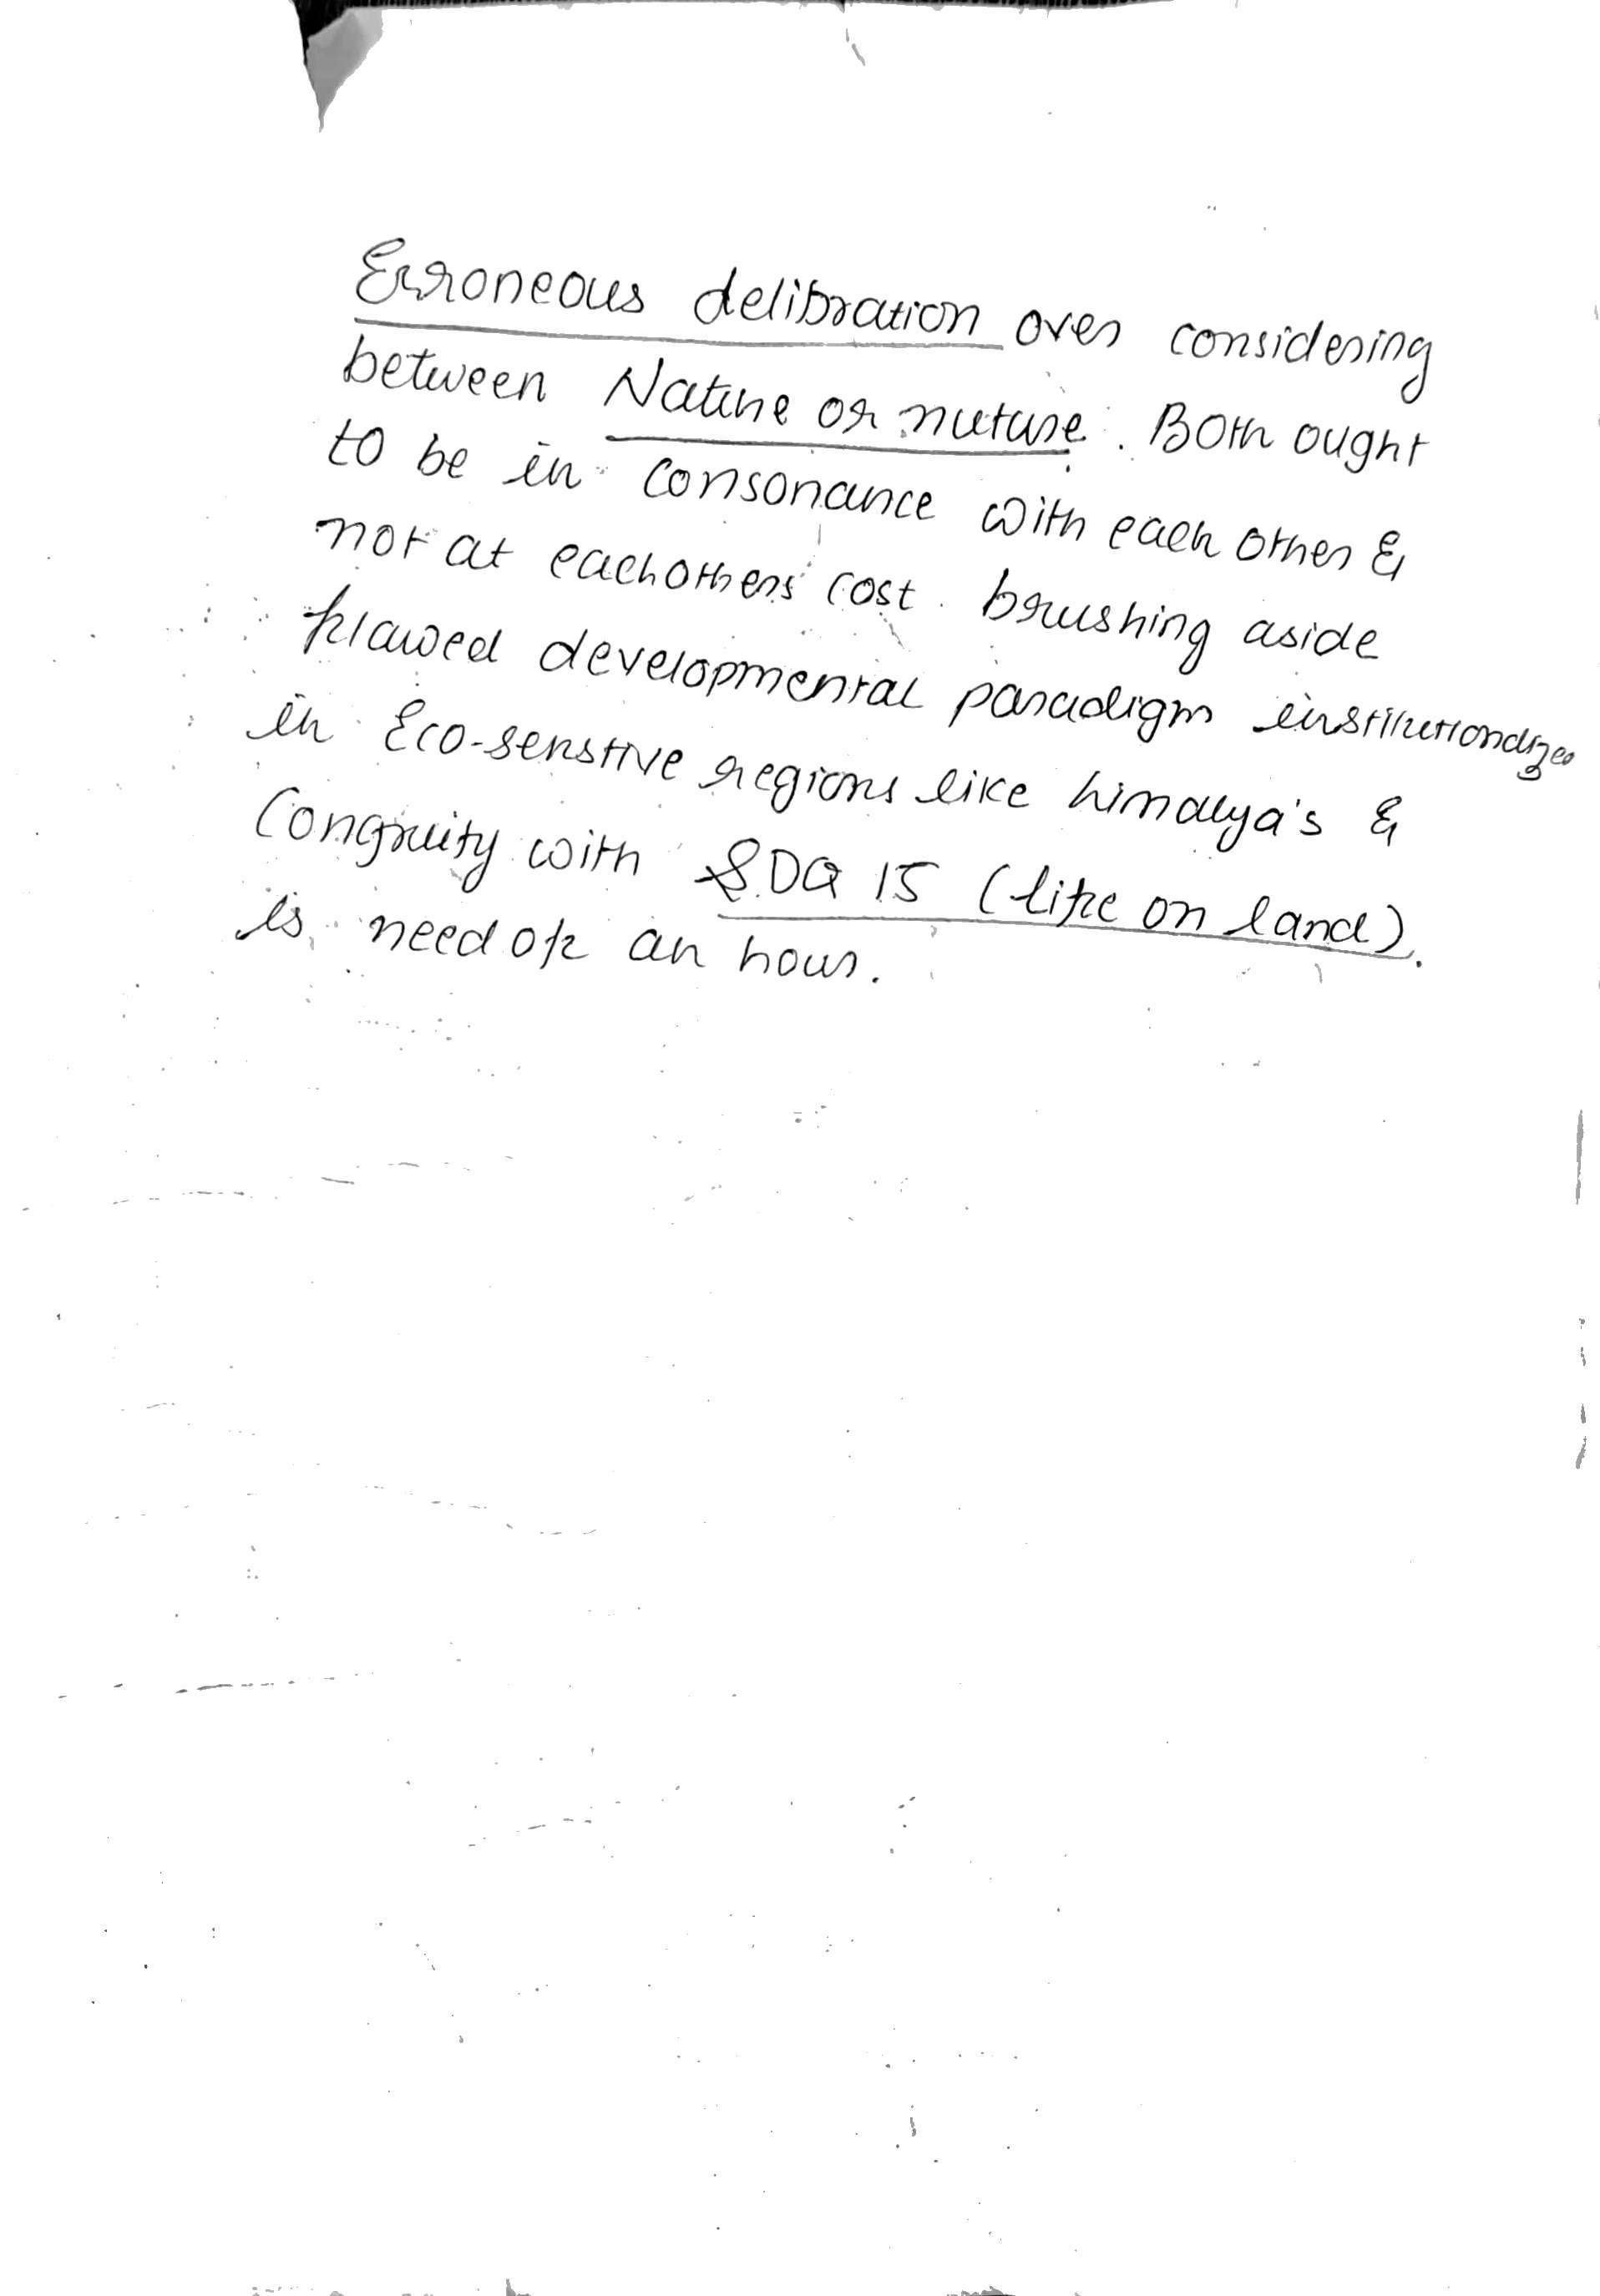 Erroneous delibration over considering
between Nature or nuture. Both ought
to be in consonance with each other &
not at eachothers' cost. brushing aside
flawed developmental paradigm institutionalized
in Eco-senstive regions like himalya's &
Congruity with SDG 15 (life on land).
is need of an hour.